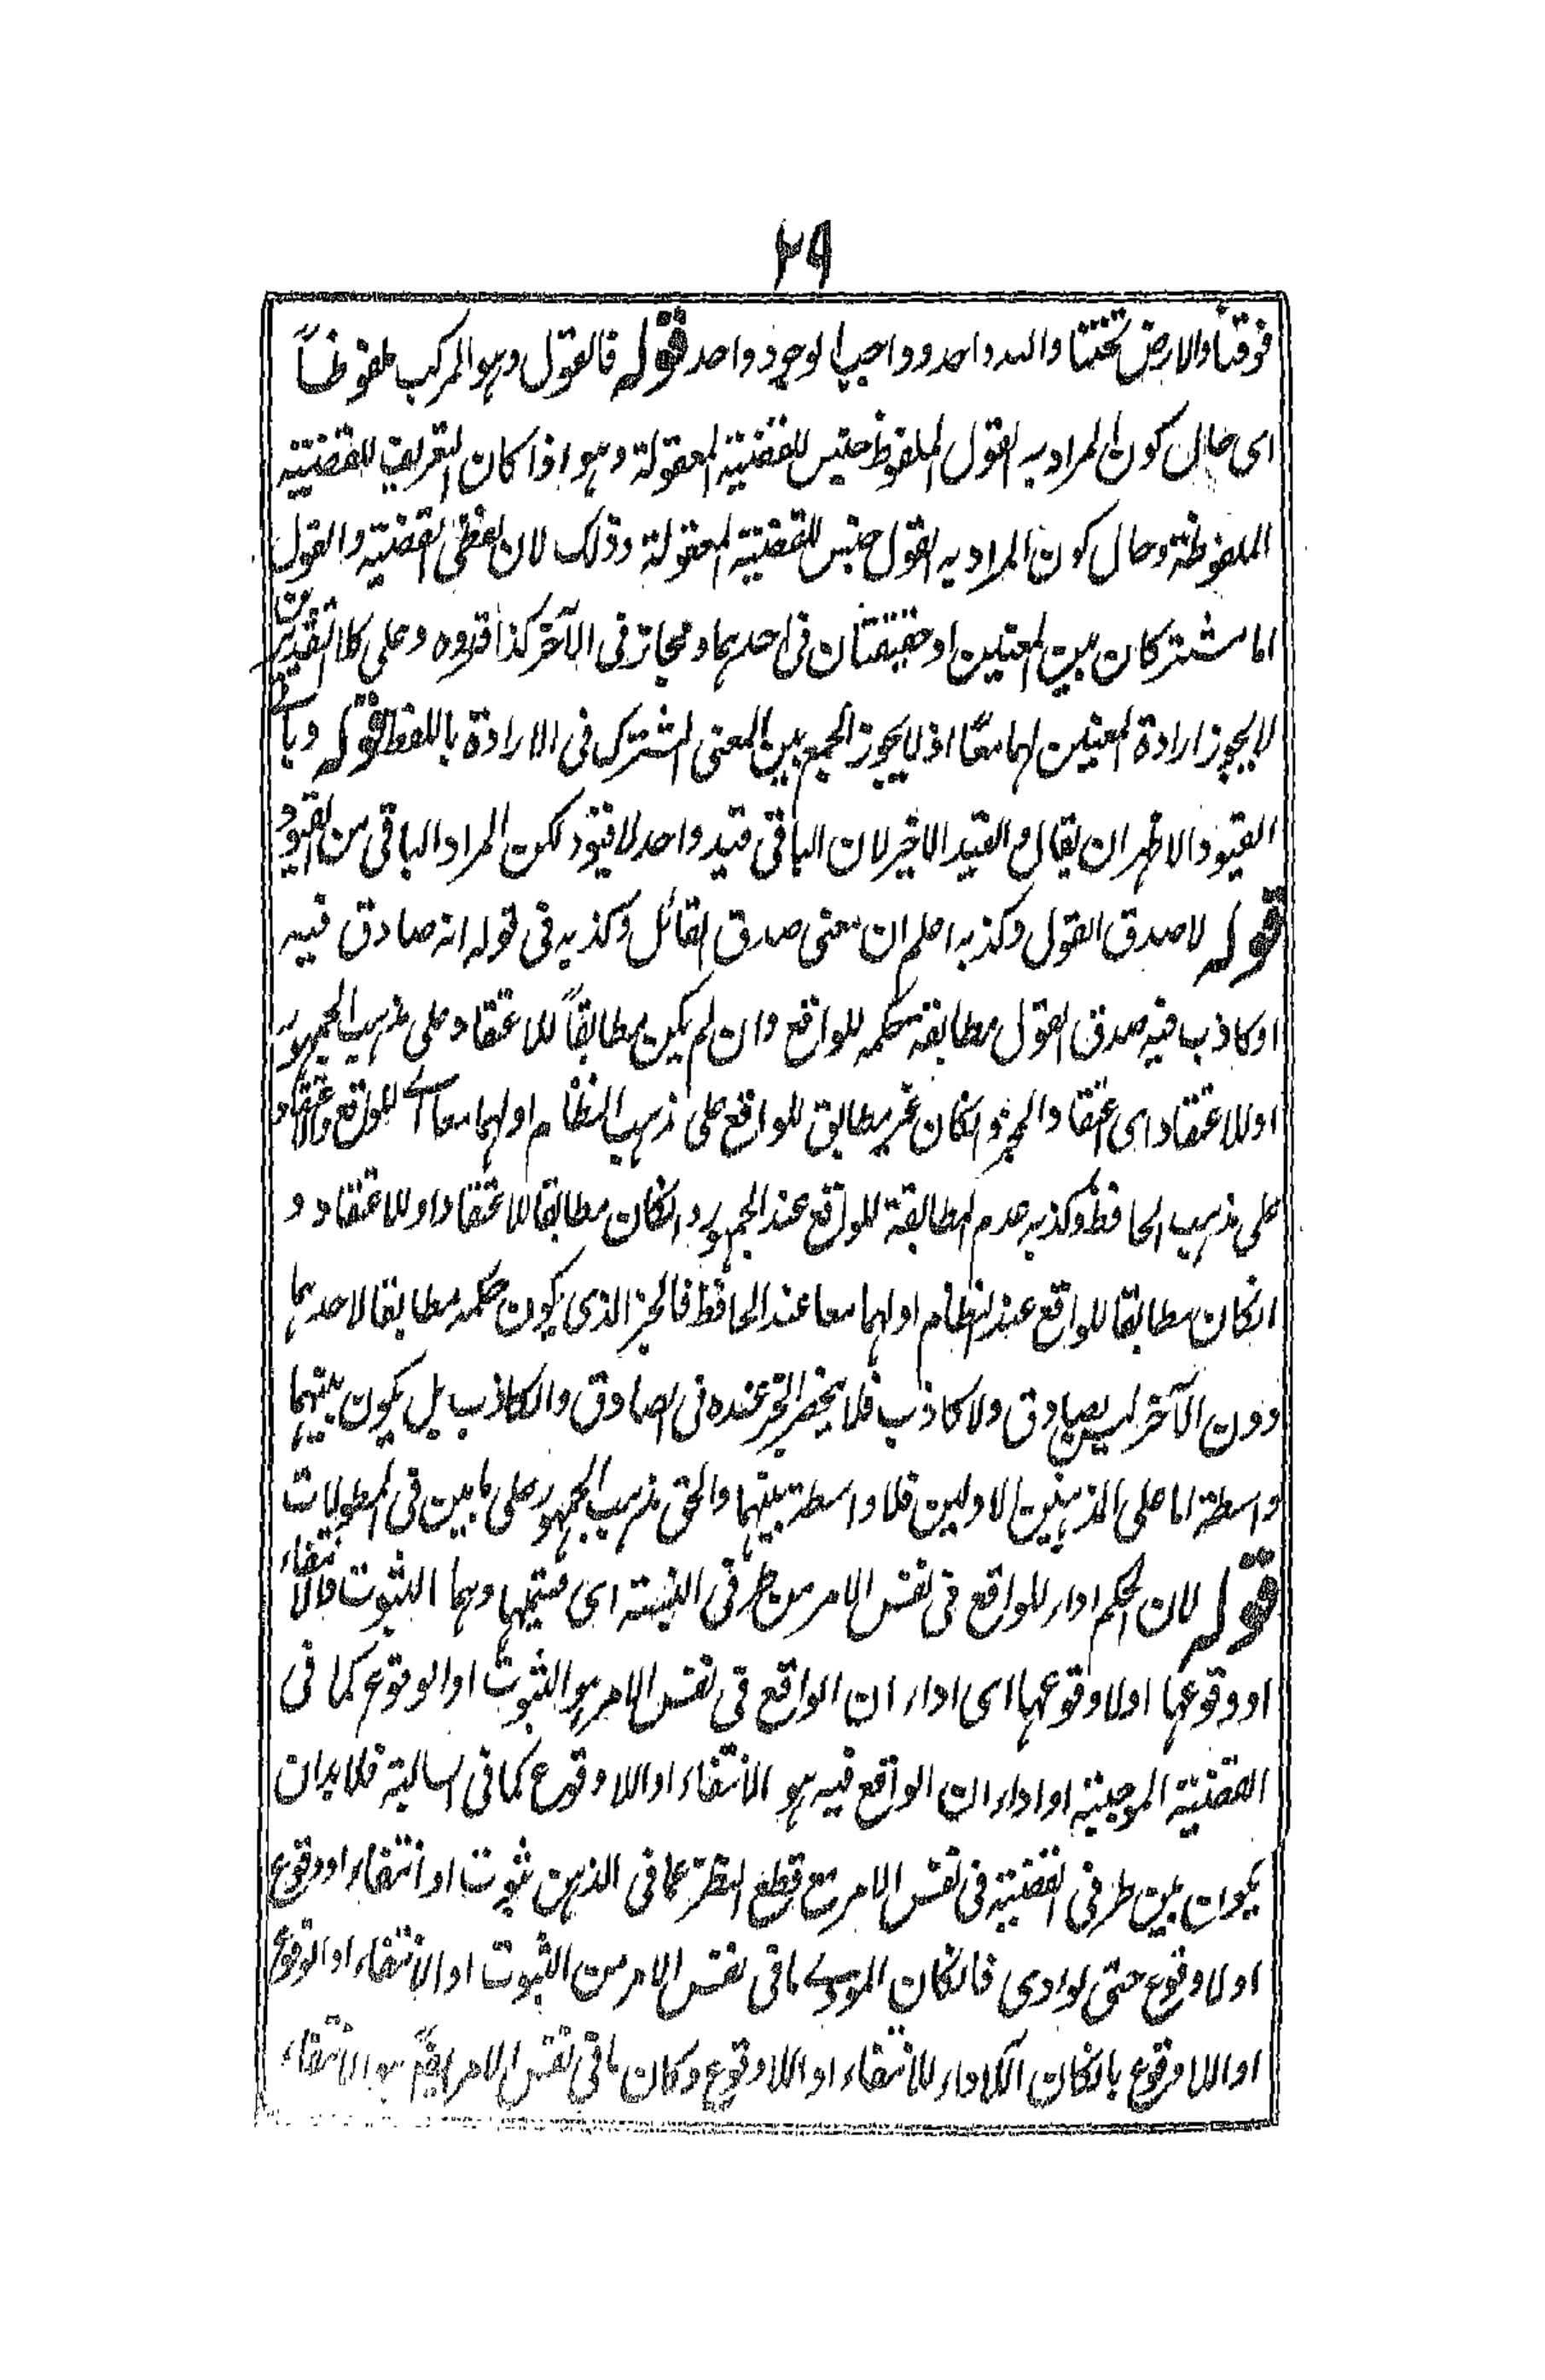 ٢٩
فوقنا والارض تحتنا والله واحد وواجب الوجود واحد قوله فالقول وهو المركب ملفوظاً
اى حال كون المراد به القول الملفوظ جنس للقضية المعقولة وهو اذا كان التعريف للقضية
الملفوظة وحال كون المراد به القول جنس للقضية المعقولة وذلك لان لفظى القضية والقول
اما مشتركان بين المعنيين او حقيقتان فى احدهما ومجاز فى الآخر كذا قرروه وعلى كلا التقديرين
لا يجوز ارادة المعنيين لهما معًا اذ لا يجوز الجمع بين المعنى المشترك فى الارادة باللفظ قوله وباقى
القيود الاظهر ان يقال والقيد الاخير لان الباقى قيد واحد لا قيود لكن المراد الباقى من القيود
قوله لا صدق القول وكذبه اعلم ان معنى صدق القائل وكذبه فى قوله انه صادق فيه
او كاذب فيه صدق القول مطابقة حكمه للواقع وان لم يكن مطابقاً للاعتقاد على مذهب الجمهور
او للاعتقاد اى اعتقاد المخبر وانكان غير مطابق للواقع على مذهب النظام او لهما معا اى للواقع والاعتقاد
على مذهب الحافظ وكذبه عدم المطابقة للواقع عند الجمهور وانكان مطابقا للاعتقاد او للاعتقاد و
انكان مطابقا للواقع عند النظام او لهما معا عند الحافظ فالخبر الذى يكون حكمه مطابقا لاحدهما
دون الآخر ليس بصادق ولا كاذب فلا ينحصر الخبر عنده فى الصادق والكاذب بل يكون بينهما
واسطة اما على المذهبين الاولين فلا واسطة بينهما والحق مذهب الجمهور على ما بين فى المطولات
قوله لان الحكم اداء للواقع فى نفس الامر من طرفى النسبة اى قسميها وهما الثبوت والانتفاء
او وقوعها او لا وقوعها اى اداء ان الواقع فى نفس الامر هو الثبوت او الوقوع كما فى
القضية الموجبة او اداء ان الواقع فيه هو الانتفاء او اللا وقوع كما فى السالبة فلا بد ان
يكون بين طرفى القضية فى نفس الامر مع قطع النظر عما فى الذهن ثبوت او انتفاء او وقوع
او لا وقوع حتى لو ادى فانكان المودى ما فى نفس الامر من الثبوت او الانتفاء او الوقوع
او اللا وقوع بانكان الاداء للانتفاء او اللا وقوع وكان ما فى نفس الامر ايضًا هو الانتفاء